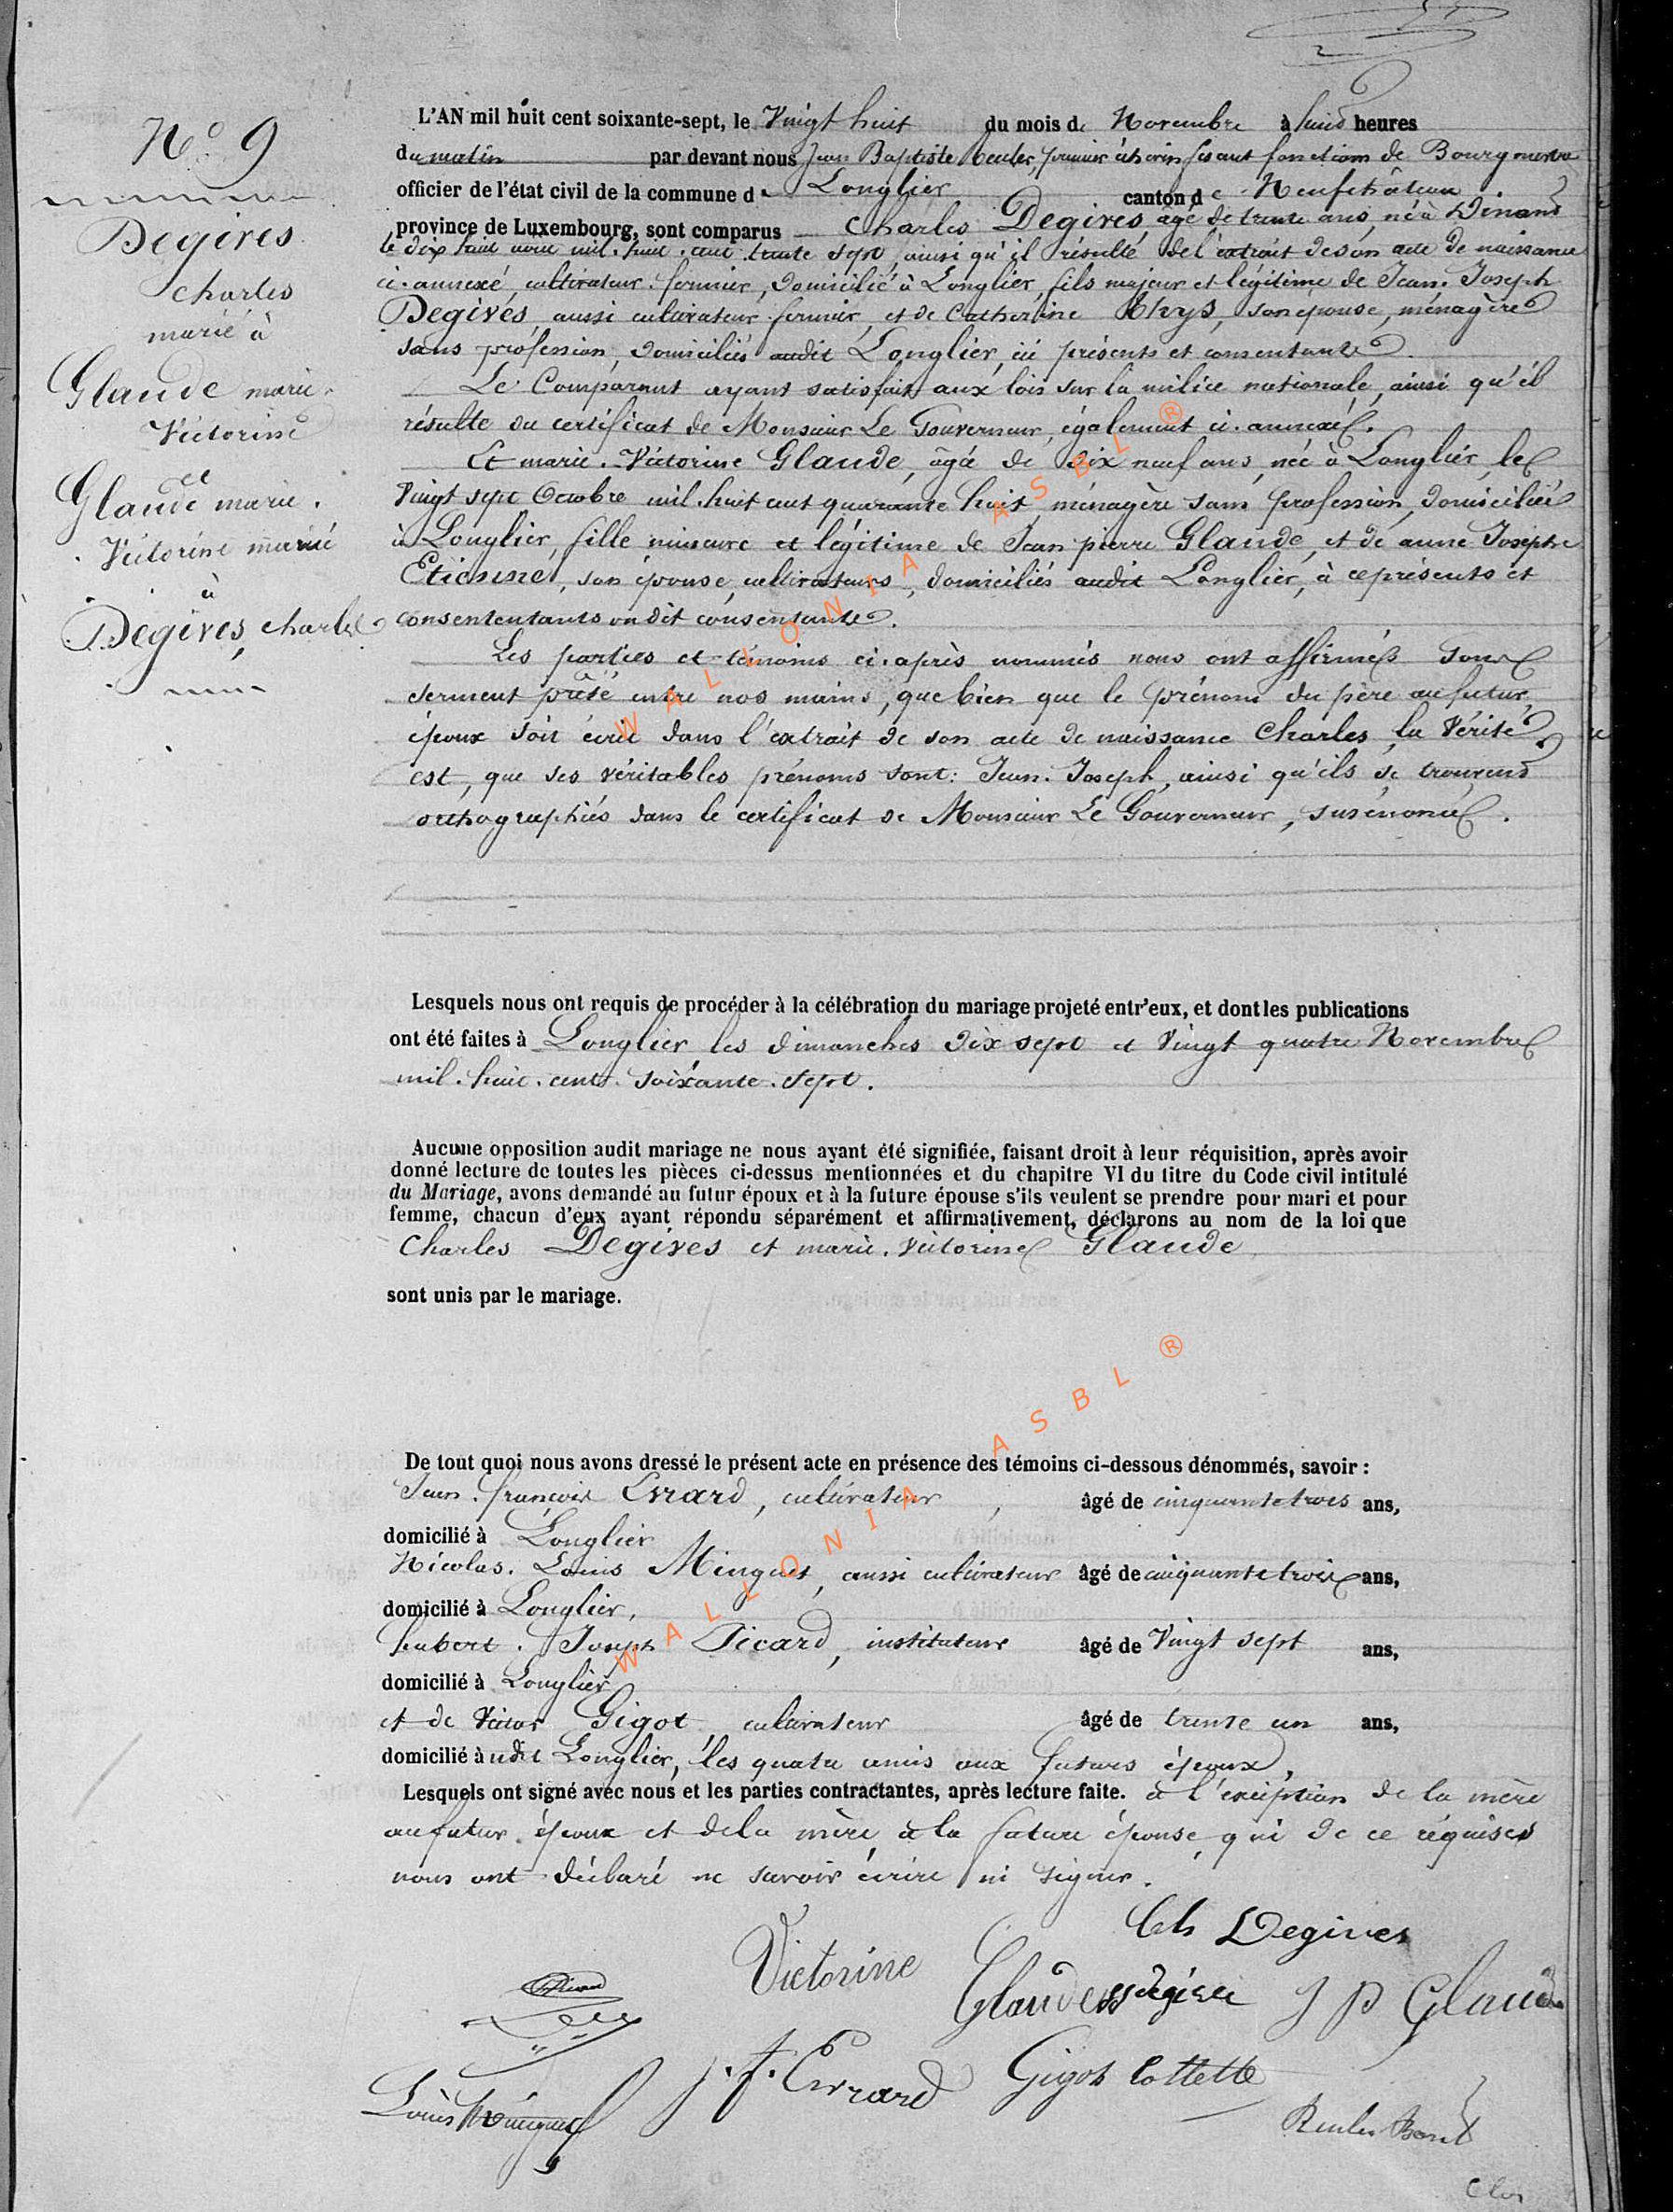 N° 9
Degives
Charles
marié à
Glaude marie.
Victorine
et
Glaude marie.
Victorine marié
à
Degives, Charles
L'AN mil huit cent soixante-sept, le Vingt huit du mois de Novembre à huit heures
du matin par devant nous Jean Baptiste Reuler, premier échevin fesant fonctions de Bourgmestre
officier de l'état civil de la commune de Longlier canton de Neufchâteau
province de Luxembourg, sont comparus Charles Degives, âgé de trente ans, né à Dinant
le dix huit avril mil. huit. cent. trente sept, ainsi qu'il résulte de l'extrait de son acte de naissance
ci-annexé, cultivateur. fermier, domicilié à Longlier, fils majeur et légitime de Jean. Joseph
Degives, aussi cultivateur fermier, et de Catherine, son épouse, ménagère
sans profession, domiciliés audit Longlier, ici présents et consentants.
Le Comparant ayant satisfait aux lois sur la milice nationale, ainsi qu'il
résulte du certificat de Monsieur Le Gouverneur, également ci-annexé.
Et marie. Victorine Glaude, âgé de dix neuf ans, née à Longlier, le
Vingt sept Octobre mil. huit cent quarante huit, ménagère sans profession, domiciliée
à Longlier, fille mineure et légitime de Jean pierre Glaude, et de anne Josephe
Etienne, son épouse, cultivateurs, domiciliés audit Longlier, à ce présents et
consententants on dit consentants.
Les parties et témoins ci-après nommés nous ont affirmés sous
serment prêté entre nos mains, que bien que le prénom du père au futur
époux soit écrit dans l'extrait de son acte de naissance Charles, la Vérité
est, que ses véritables prénoms sont: Jean. Joseph, ainsi qu'ils se trouvent
orthographiés dans le certificat de Monsieur Le Gouverneur, susénoncé.
Lesquels nous ont requis de procéder à la célébration du mariage projeté entr'eux, et dont les publications
ont été faites à Longlier, les dimanches dix sept et Vingt quatre Novembre
mil. huit. cent. soixante. sept.
Aucune opposition audit mariage ne nous ayant été signifiée, faisant droit à leur réquisition, après avoir
donné lecture de toutes les pièces ci-dessus mentionnées et du chapitre VI du titre du Code civil intitulé
du Mariage, avons demandé au futur époux et à la future épouse s'ils veulent se prendre pour mari et pour
femme, chacun d'eux ayant répondu séparément et affirmativement, déclarons au nom de la loi que
Charles Degives et marie. Victorine Glaude
sont unis par le mariage.
De tout quoi nous avons dressé le présent acte en présence des témoins ci-dessous dénommés, savoir :
Jean. françois Evrard, cultivateur, âgé de cinquante trois ans,
domicilié à Longlier
Nicolas. Louis Minguet, aussi cultivateur âgé de cinquante trois ans,
domicilié à Longlier,
hubert. Joseph Picard, instituteur âgé de Vingt sept ans,
domicilié à Longlier
et de Victor Gigot cultivateur âgé de trente un ans,
domicilié à udit Longlier, les quatre amis aux futurs époux,
Lesquels ont signé avec nous et les parties contractantes, après lecture faite. à l'exception de la mère
au futur époux et de la mère à la future épouse, qui de ce requises
nous ont déclaré ne savoir écrire ni signer.
Ch Degives
Victorine Glaude J P Glaude
J. f. Evrard Gigot Collette
Louis Minguet
WALLONIA ASBL ®
WALLONIA ASBL ®